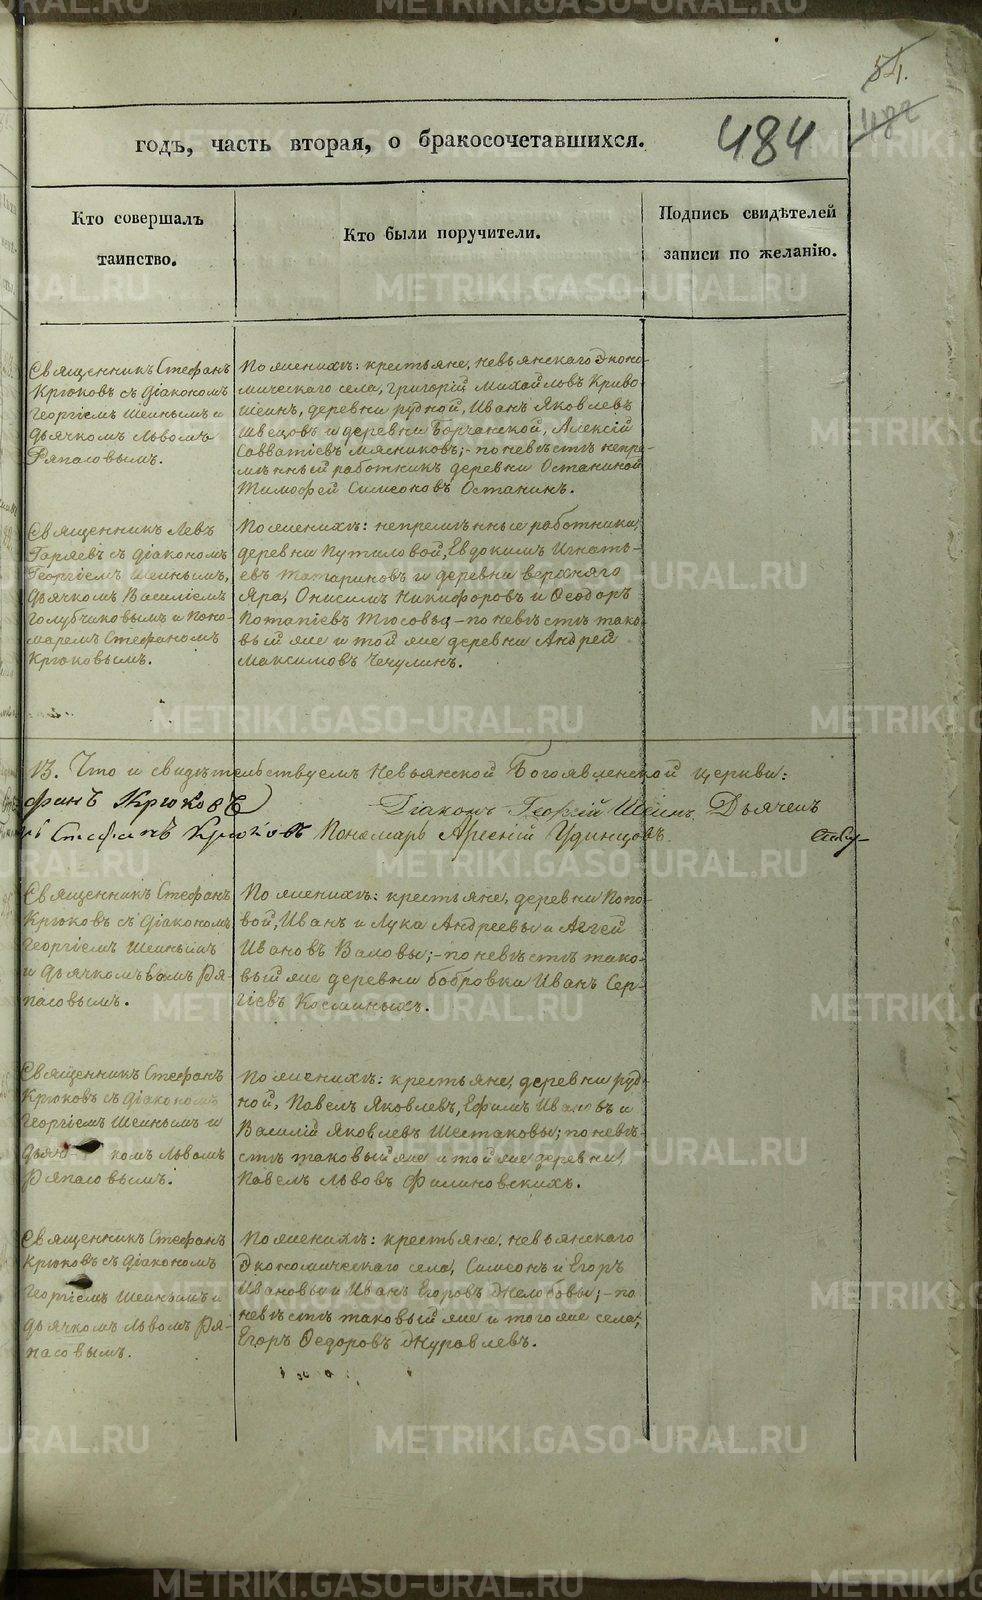 54.
482
годъ, часть вторая, о бракосочетавшихся.
484
Кто совершалъ
таинство.
Кто были поручители.
Подпись свидѣтелей
записи по желанію.
Священникъ Стефанъ
Крюковъ съ діакономъ
Георгіемъ Шеинымъ и
дьячкомъ Львомъ
Ряпасовымъ.
По женихѣ: крестьяне, невьянскаго Эконо-
мическаго села, Григорій Михайловъ Криво
шеинъ, деревни рудной, Иванъ Яковлевъ
Швецовъ и деревни Борчанской, Алексій
Савватіевъ Мясниковъ;- по невѣстѣ непре-
мѣнный работникъ деревни Останиной
Тимофей Симеоновъ Останинъ.
Священникъ Левъ
Гаряевъ съ діакономъ
Георгіемъ Шеинымъ,
дьячкомъ Василіемъ
Голубчиковымъ и поно-
маремъ Стефаномъ
Крюковымъ.
По женихѣ: непремѣнные работники,
деревни Путиловой, Евдокимъ Игнать-
евъ Татариновъ и деревни верхняго
Яра, Онисимъ Никифоровъ и Ѳеодоръ
Потапіевъ Тюсовы,- по невѣстѣ тако-
вый же и той же деревни Андрей
Максимовъ Чечулинъ.
13. Что и свидѣтельствуемъ Невьянской Богоявленской церкви:
фанъ Крюковъ Діаконъ Георгій Шеинъ, Дьячекъ
Стефанъ Крюковъ Пономарь Арсеній Удинцовъ.
Священникъ Стефанъ
Крюковъ съ діакономъ
Георгіемъ Шеинымъ
и дьячкомъ Львомъ Ря-
пасовымъ.
По женихѣ: крестьяне, деревни Попо-
вой, Иванъ и Лука Андреевы и Аггей
Ивановъ Валовы;- по невѣстѣ тако-
вый же деревни бобровки Иванъ Сер-
гіевъ Косминыхъ.
Священникъ Стефанъ
Крюковъ съ діакономъ
Георгіемъ Шеинымъ и
дьяч- комъ Львомъ
Ряпасовымъ.
По женихѣ: крестьяне, деревни руд-
ной, Павелъ Яковлевъ, Ефимъ Ивановъ и
Василій Яковлевъ Шестаковы; по невѣ-
стѣ таковый же и той же деревни,
Павелъ Львовъ Филиновскихъ.
Священникъ Стефанъ
Крюковъ съ діакономъ
Георгіемъ Шеинымъ и
дьячкомъ Львомъ Ря-
пасовымъ.
По женихѣ: крестьяне, невьянскаго
Экономическаго села, Симеонъ и Егоръ
Ивановы и Иванъ Егоровъ Жолобовы;- по
невѣстѣ таковый же и того же села,
Егоръ Ѳедоровъ Журавлевъ.
METRIKI.GASO-URAL.RU